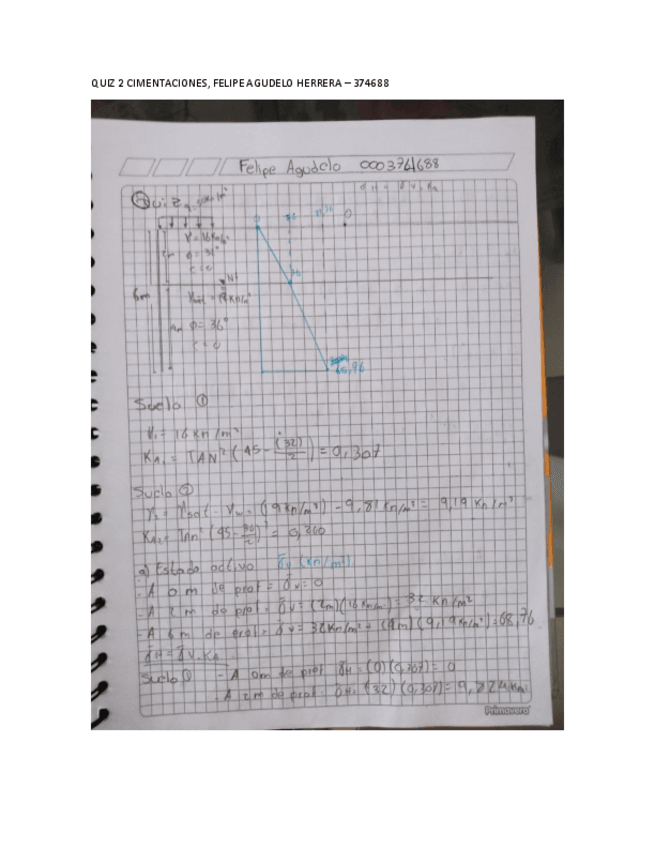 QUIZ 2 CIMENTACIONES, FELIPE AGUDELO HERRERA – 374688
Felipe Agudelo 000374688
Quiz
γ = 16 Kn/m³
φ = 32°
c = 0
Nf
6m
φ = 36°
c = 0
Suelo ①
γ₁ = 16 Kn/m³
KA₁ = TAN² (45 - (32)/2) = 0,307
Suelo ②
γ₂ = γsat - γw = (19 Kn/m³) - 9,81 Kn/m³ = 9,19 Kn/m³
= 0,260
a) Estado activo σv (Kn/m²)
- A 0 m de prof = σv = 0
- A 2 m de prof = σv = (2m)(16 Kn/m³) = 32 Kn/m²
- A 6 m de prof = σv = 32 Kn/m² + (4m)(9,19 Kn/m³) = 68,76
σH = σv · KA
Suelo ① - A 0m de prof σH = (0)(0,307) = 0
- A 2m de prof σH = (32)(0,307) = 9,824 Kn
Primavera